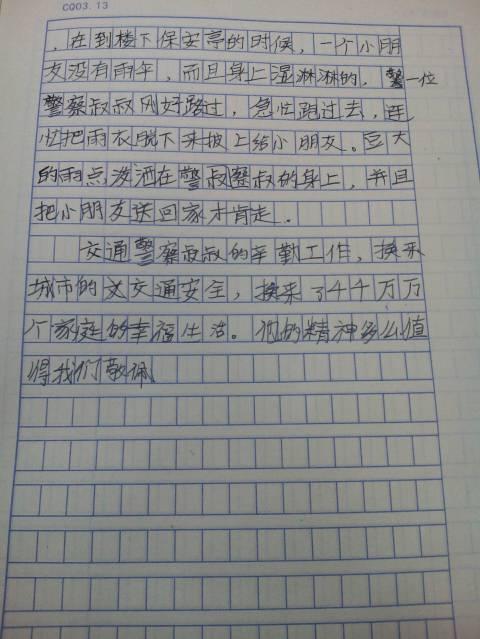 CQ03.13
，在到楼下保安亭的时候，一个小朋
友没有雨伞，而且身上湿淋淋的，一位
警察叔叔刚好路过，急忙跑过去，连
忙把雨衣脱下来披上给小朋友。豆大
的雨点泼洒在警察叔叔的身上，并且
把小朋友送回家才肯走．
交通警察叔叔的辛勤工作，换来
城市的交通安全，换来了千千万万
个家庭的幸福生活。他的精神多么值
得我们敬佩